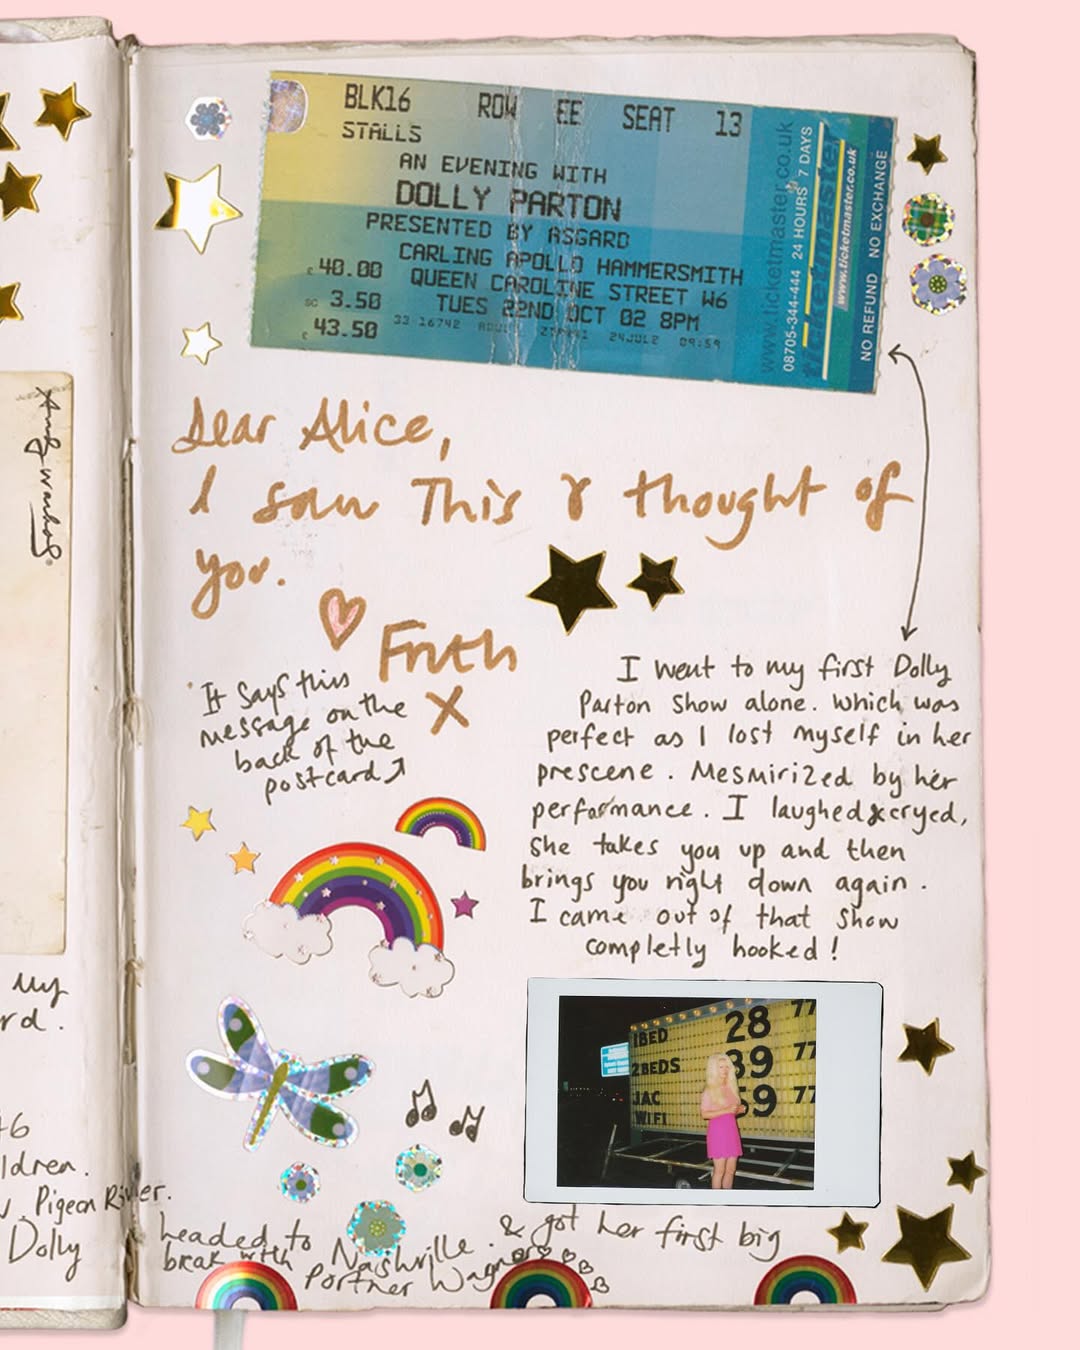 BLK16 ROW EE SEAT 13
STALLS
AN EVENING WITH
DOLLY PARTON
PRESENTED BY ASGARD
CARLING APOLLO HAMMERSMITH
£ 40.00 QUEEN CAROLINE STREET W6
SC 3.50 TUES 22ND OCT 02 8PM
£ 43.50 33 16742 24JUL2 09:59
www.ticketmaster.co.uk
08705-344-444 24 HOURS 7 DAYS
ticketmaster
www.ticketmaster.co.uk
NO REFUND NO EXCHANGE
Andy Warhol
Dear Alice,
I saw This & thought of
you.
Fruth
X
It says this
message on the
back of the
postcard
I went to my first Dolly
Parton Show alone. Which was
perfect as I lost myself in her
prescene. Mesmirized by her
performance. I laughed & cryed,
She takes you up and then
brings you right down again.
I came out of that Show
completly hooked!
1BED 28 77
2BEDS 39 77
JAC 59 77
WIFI
my
rd.
ldren.
Pigeon River.
Dolly
headed to Nashville. & got her first big
break with Portner Wagner